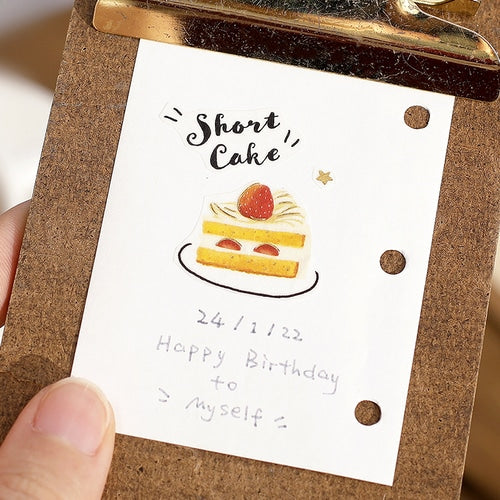 Short
Cake
24/1/22
Happy Birthday
to
myself